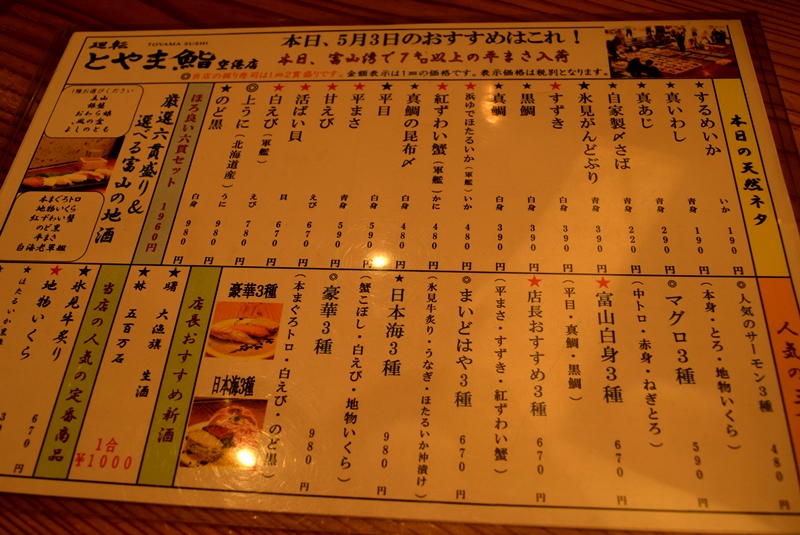 廻転 TOYAMA SUSHI
とやま鮨 空港店
本日、5月3日のおすすめはこれ！
本日、富山湾で7㌔以上の平まさ入荷
◎当店の握り寿司は1皿2貫盛りです。金額表示は1皿の価格です。表示価格は税別となります。
本日の天然ネタ
するめいか いか 190円
★真いわし 青身 190円
★真あじ 青身 290円
★自家製〆さば 青身 220円
★氷見がんどぶり 青身 390円
★すずき 白身 390円
★黒鯛 白身 390円
★真鯛 白身 390円
★浜ゆでほたるいか(軍艦) いか 480円
★紅ずわい蟹(軍艦) かに 480円
★真鯛の昆布〆 白身 480円
★平目 白身 590円
★平まさ 青身 590円
★甘えび えび 670円
★活ばい貝 貝 670円
★白えび(軍艦) えび 780円
◎上うに(北海道産) うに 980円
★のど黒 白身 980円
ほろ良い六貫セット 1960円
厳選六貫盛り&
選べる富山の地酒
(1種お選びください)
立山
銀盤
おわら娘
風の盆
よしのとも
本まぐろトロ
地物いくら
紅ずわい蟹
のど黒
平まさ
白海老軍艦
人気の
◎人気のサーモン3種 480円
(本身・とろ・地物いくら)
◎マグロ3種 590円
(中トロ・赤身・ねぎとろ)
★富山白身3種 670円
(平目・真鯛・黒鯛)
★店長おすすめ3種 670円
(平まさ・すずき・紅ずわい蟹)
◎まいどはや3種 670円
(氷見牛炙り・うなぎ・ほたるいか沖漬け)
★日本海3種 980円
(蟹こぼし・白えび・地物いくら)
◎豪華3種 980円
(本まぐろトロ・白えび・のど黒)
豪華3種
日本海3種
店長おすすめ新酒
★曙 大漁旗 生酒
★林 五百万石
1合
¥1000
当店の人気の定番商品
★地物いくら 670円
★氷見牛炙り